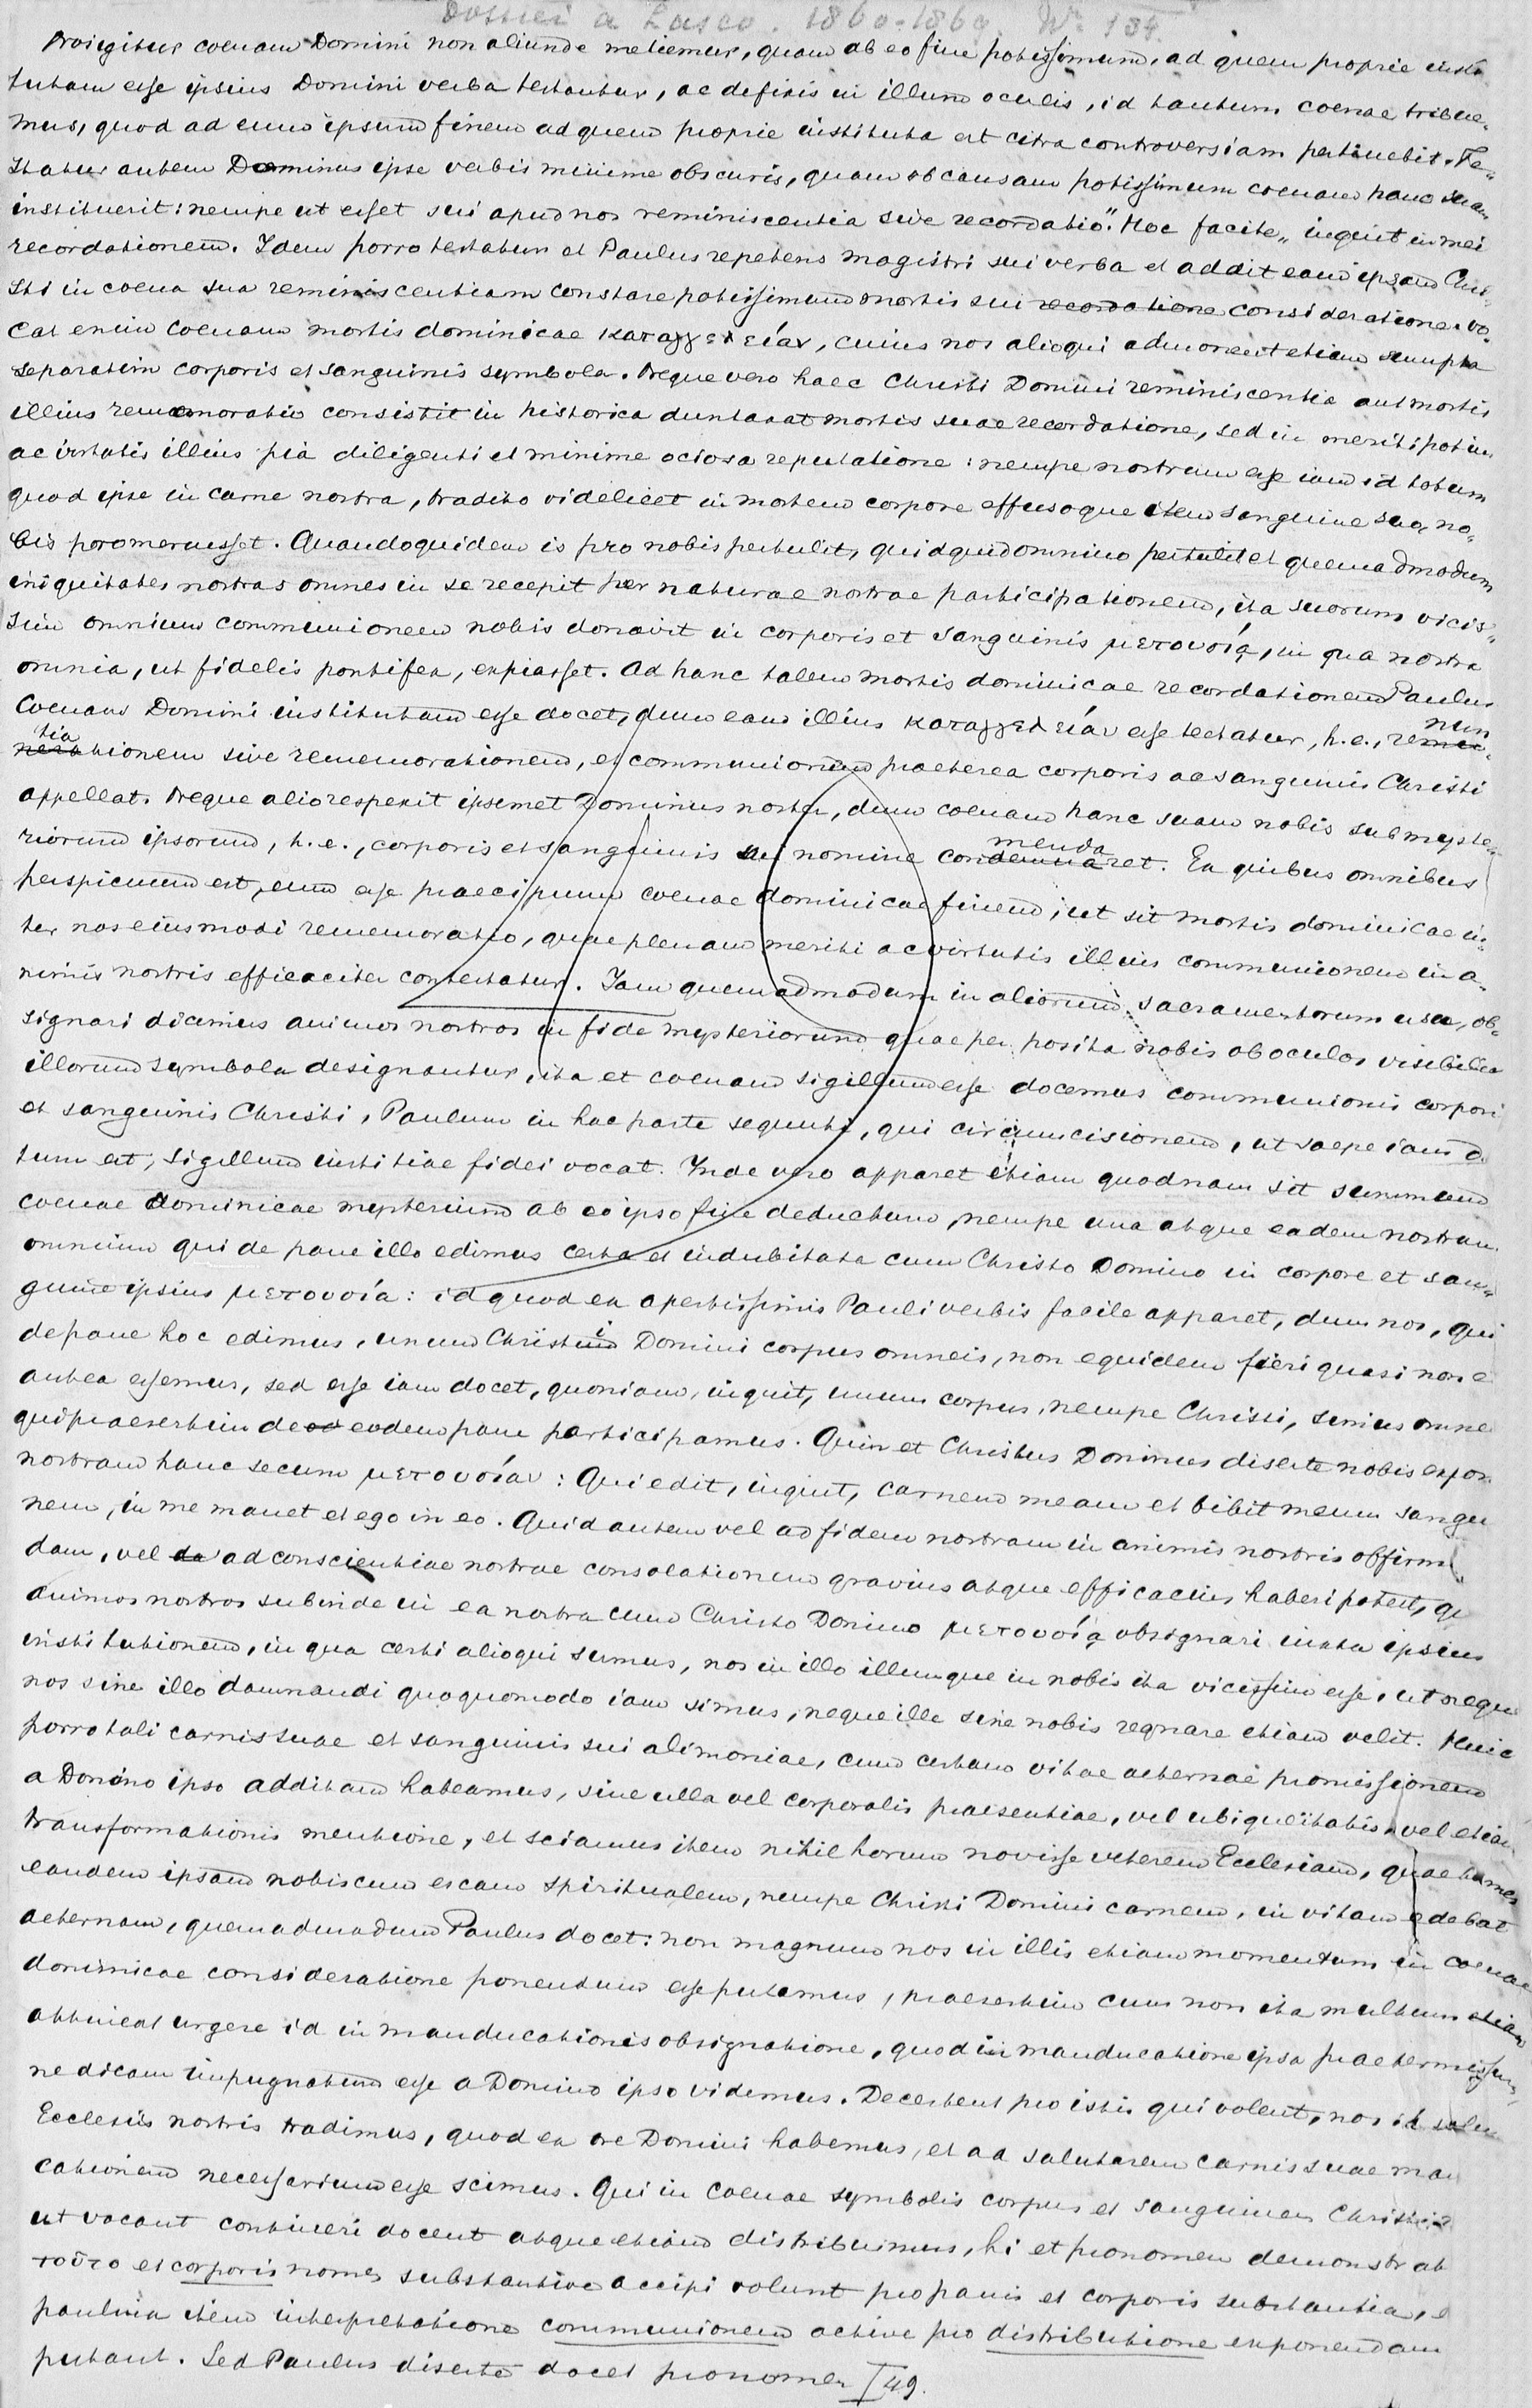 Dossier a Lasco. 1860-1869 No 134.
Proigitur coenam Domini non aliunde metiemur, quam ab eo fine potissimum, ad quem proprie insti
tutam esse ipsius Domini verba testantur, ac defixis in illum oculis, id tantum coenae tribue-
mus, quod ad eum ipsum finem ad quem proprie instituta est citra controversiam pertinebit. Te-
statur autem Dominus ipse verbis minime obscuris, quam ob causam potissimum coenam hanc suam
instituerit: nempe ut esset sui apud nos reminiscentia sive recordatio." Hoc facite" inquit in mei
recordationem. Idem porro testatur et Paulus repetens magistri sui verba et addit eam ipsam Chri-
sti in coena sua reminiscentiam constare potissimum mortis sui recordatione consideratione. Vo-
cat enim coenam mortis dominicae καταγγελείαν, cuius nos alioqui admoneut etiam sumpta
separatim corporis et sanguinis symbola. Neque vero haec Christi Domini reminiscentia aut mortis
illius rememoratio consistit in historica duntaxat mortis suae recordatione, sed in meriti potius
ac virtutis illius pia diligenti et minime ociosa reputatione: nempe nostrum esse iam id totum
quod ipse in carne nostra, tradito videlicet in mortem corpore effusoque item sanguine suo, no-
bis promeruisset. Quandoquidem is pro nobis pertulit, quidquid omnino pertulit et quemadmodum
iniquitates nostras omnes in se recepit per naturae nostrae participationem, ita suorum vicis-
sim omnium communionem nobis donavit in corporis et sanguinis μετουσίᾳ, in qua nostra
omnia, ut fidelis pontifex, expiasset. Ad hanc talem mortis dominicae recordationem Paulus
Coenam Domini institutam esse docet, dum eam illius καταγγελείαν esse testatur, h. e., renun
tiationem sive rememorationem, et communionem praeterea corporis ac sanguinis Christi
appellat. Neque alio respexit ipsemet Dominus noster, dum coenam hanc suam nobis sub myste-
riorum ipsorum, h. e., corporis et sanguinis sui nomine commendaret. Ex quibus omnibus
perspicuum est, eum esse praecipuum coenae dominicae finem, ut sit mortis dominicae in-
ter nos eiusmodi rememoratio, quae plenam meriti ac virtutis illius communionem in a-
nimis nostris efficaciter contestatur. Iam quemadmodum in aliorum sacramentorum usu, ob-
signari dicimus animos nostros in fide mysteriorum quae per posita nobis ob oculos visibilia
illorum symbola designantur, ita et coenam sigillum esse docemus communionis corpori
et sanguinis Christi, Paulum in hac parte sequuti, qui circumcisionem, ut saepe iam d
tum est, sigillum iustitiae fidei vocat. Inde vero apparet etiam quodnam sit summum
coenae dominicae mysterium ab eo ipso fine deductum, nempe una atque eadem nostrum
omnium qui de pane illo edimus certa et indubitata cum Christo Domino in corpore et san-
guine ipsius μετουσία: id quod ex apertissimis Pauli verbis facile apparet, dum nos, qui
de pane hoc edimus, unum Christi Domini corpus omneis, non equidem fieri quasi non e
antea essemus, sed esse iam docet, quoniam, inquit, unum corpus, nempe Christi, sumus omne
qui praesertim de eo eodem pane participamus. Quin et Christus Dominus diserte nobis expon
nostram hanc secum μετουσίαν: Qui edit, inquit, carnem meam et bibit meum sangui
nem, in me manet et ego in eo. Quid autem vel ad fidem nostram in animis nostris offirm
dam, vel da ad conscientiae nostrae consolationem gravius atque efficacius haberi potest, q
animos nostros subinde in ea nostra cum Christo Domino μετουσίᾳ obsignari iuxta ipsius
institutionem, in qua certi alioqui sumus, nos in illo illumque in nobis ita vicissim esse, ut neque
nos sine illo damnandi quoquomodo iam simus, neque ille sine nobis regnare etiam velit. Huic
porro tali carnis suae et sanguinis sui alimoniae, cum certam vitae aeternae promissionem
a Domino ipso additam habeamus, sine ulla vel corporalis praesentiae, vel ubiquitatis, vel etiam
transformationis mentione, et sciamus item nihil horum novisse veterem Ecclesiam, quae tamen
eandem ipsam nobiscum escam spiritualem, nempe Christi Domini carnem, in vitam edebat
aeternam, quemadmodum Paulus docet: non magnum nos in illis etiam momentum in coenae
dominicae consideratione ponendum esse putamus, praesertim cum non ita multum etiam
attineat urgere id in manducationis obsignatione, quod in manducatione ipsa praetermissum,
ne dicam impugnatum esse a Domino ipso videmus. Decertent pro istis qui volent, nos id
Ecclesiis nostris tradimus, quod ex ore Domini habemus, et ad salutarem carnis suae man
cationem necessarium esse scimus. Qui in coenae symbolis corpus et sanguinem Christi
ut vocant contineri docent atque etiam distribuimus, hi et pronomen demonstrat
τοῦτο et corporis nomen substantive accipi volunt pro panis et corporis substantia, e
paulina item interpretatione communionem active pro distributione exponendam
putant. Sed Paulus diserte docet pronomen 49.